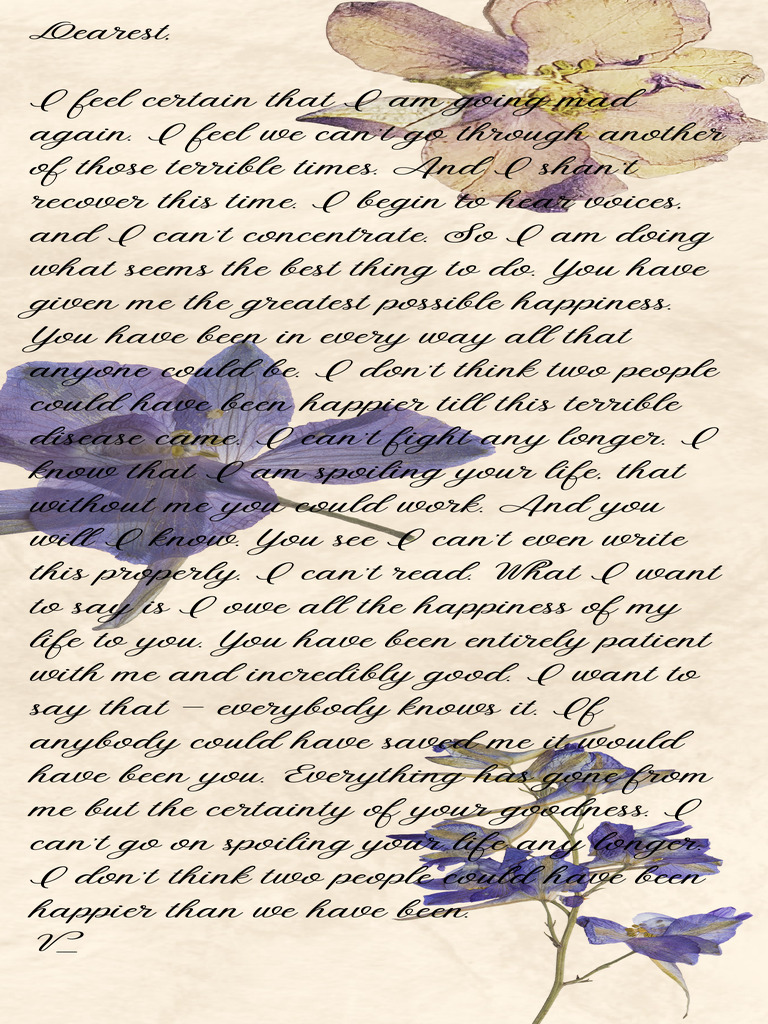 Dearest.
I feel certain that I am going mad
again. I feel we can't go through another
of those terrible times. And I shan't
recover this time. I begin to hear voices,
and I can't concentrate. So I am doing
what seems the best thing to do. You have
given me the greatest possible happiness.
You have been in every way all that
anyone could be. I don't think two people
could have been happier till this terrible
disease came. I can't fight any longer. I
know that I am spoiling your life, that
without me you could work. And you
will I know. You see I can't even write
this properly. I can't read. What I want
to say is I owe all the happiness of my
life to you. You have been entirely patient
with me and incredibly good. I want to
say that – everybody knows it. If
anybody could have saved me it would
have been you. Everything has gone from
me but the certainty of your goodness. I
can't go on spoiling your life any longer.
I don't think two people could have been
happier than we have been.
V_